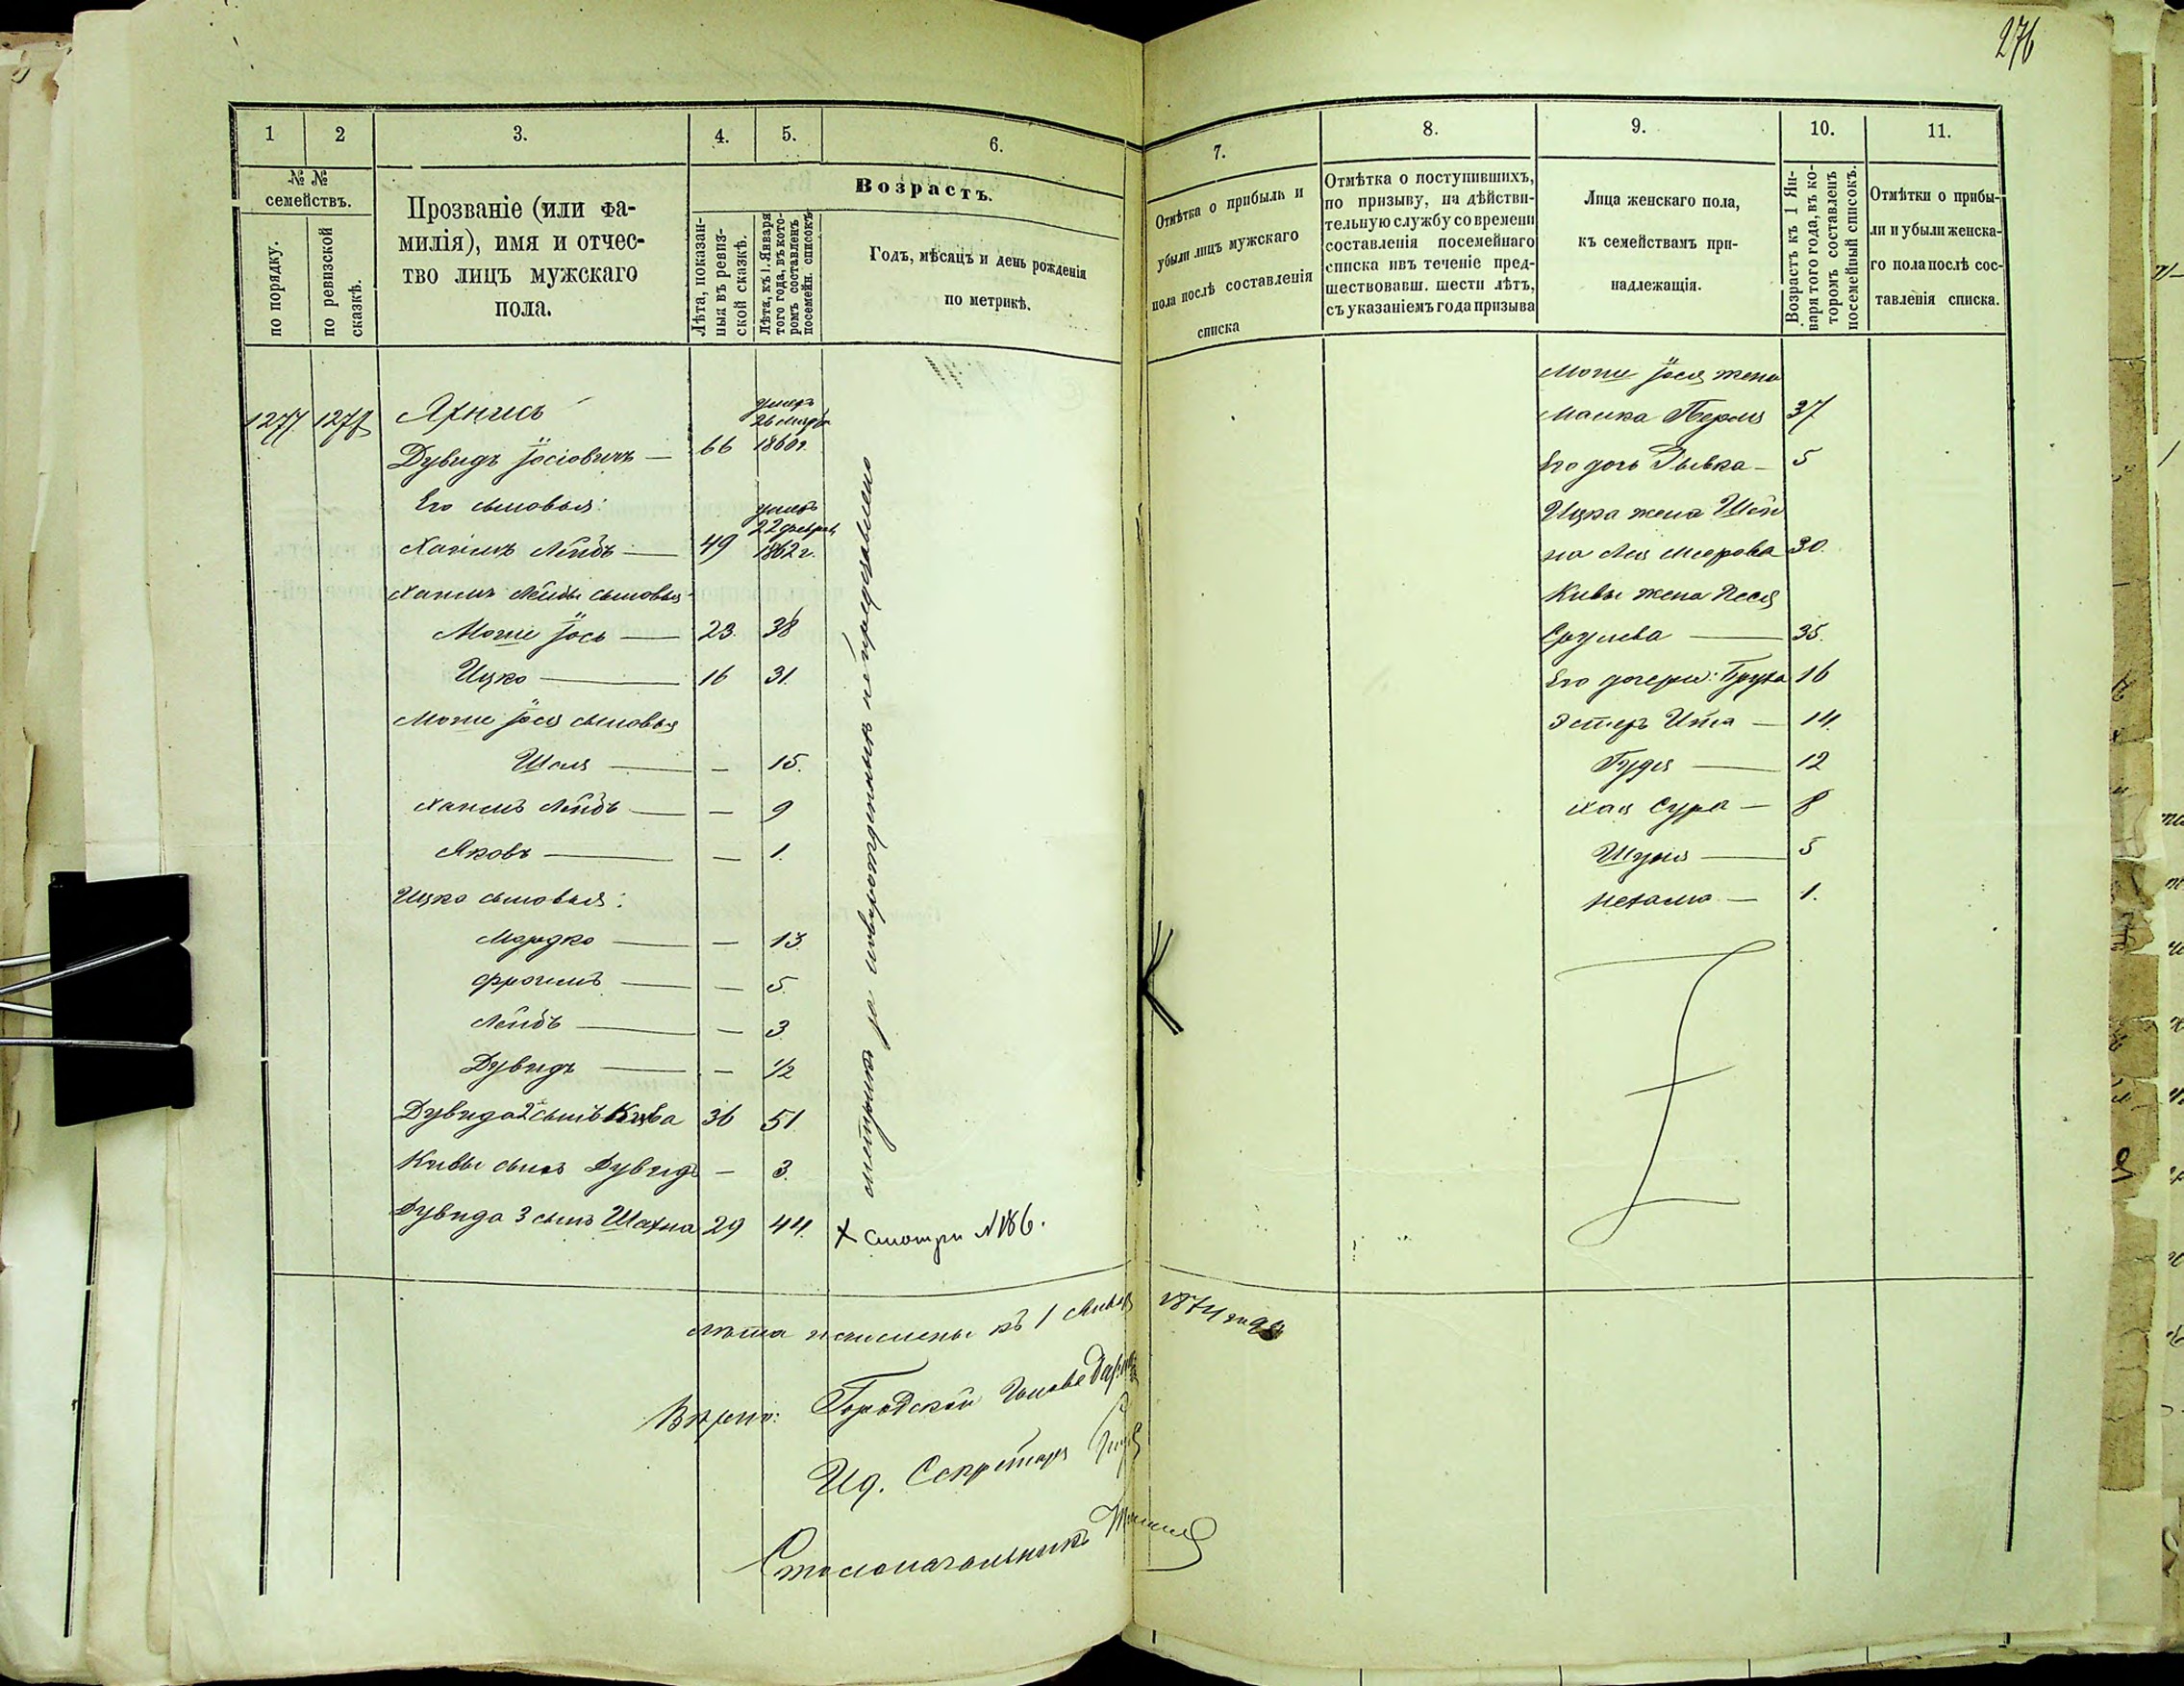 276
1
2
3.
4.
5.
6.
№ №
семействъ.
по порядку.
по ревизской
сказкѣ.
Прозваніе (или фа-
милія), имя и отчес-
тво лицъ мужскаго
пола.
Возрастъ.
Лѣта, показан-
ныя въ ревиз-
ской сказкѣ.
Лѣта, къ 1. Января
того года, въ кото-
ромъ составленъ
посемейн. списокъ.
Годъ, мѣсяцъ и день рожденія
по метрикѣ.
1277 1278 Яхнисъ
умеръ
1860 г.
Дувидъ Іосіовичъ — 66
Его сыновья:
умеръ
22 февраля
1862 г.
Хаимъ Лейбъ — 49
Хаимъ Лейбы сыновья
Моше Іось — 23. 38
Ицко — 16 31.
Моше Іося сыновья
Шая — — 15.
Хаимъ Лейбъ — — 9
Яковъ — — 1.
Ицко сыновья:
Мордко — — 13.
Фроимъ — — 5.
Лейбъ — — 3
Дувидъ — — 1/2
Дувида 2 сынъ Кива 36 51.
Кивы сынъ Дувидъ — 3.
Дувида 3 сынъ Шахна 29 44.
метрикъ за новорожденныхъ не представлено
х Смотри № 186.
7.
8.
9.
10.
11.
Отмѣтка о прибыли и
убыли лицъ мужскаго
пола послѣ составленія
списка
Отмѣтка о поступившихъ,
по призыву, на дѣйстви-
тельную службу со времени
составленія посемейнаго
списка и въ теченіе пред-
шествовавш. шести лѣтъ,
съ указаніемъ года призыва
Лица женскаго пола,
къ семействамъ при-
надлежащія.
Возрастъ къ 1 Ян-
варя того года, въ ко-
торомъ составленъ
посемейный списокъ.
Отмѣтки о прибы-
ли и убыли женска-
го пола послѣ сос-
тавленія списка.
Моше Іося жена
Малка Перля 37
Его дочь Рывка — 5
Ицка жена Шей
на Лея Меерова 30.
Кивы жена Песя
Срулева — 35.
Его дочери: Бруха 16
Эстеръ Ита — 14.
Гудя — 12
Хая Сура — 8
Шуня — 5
Нехама — 1.
Лѣта исчислены къ 1 Января 1874 года
Вѣрно: Городской Голова
Ид. Секретаря
Столоначальникъ